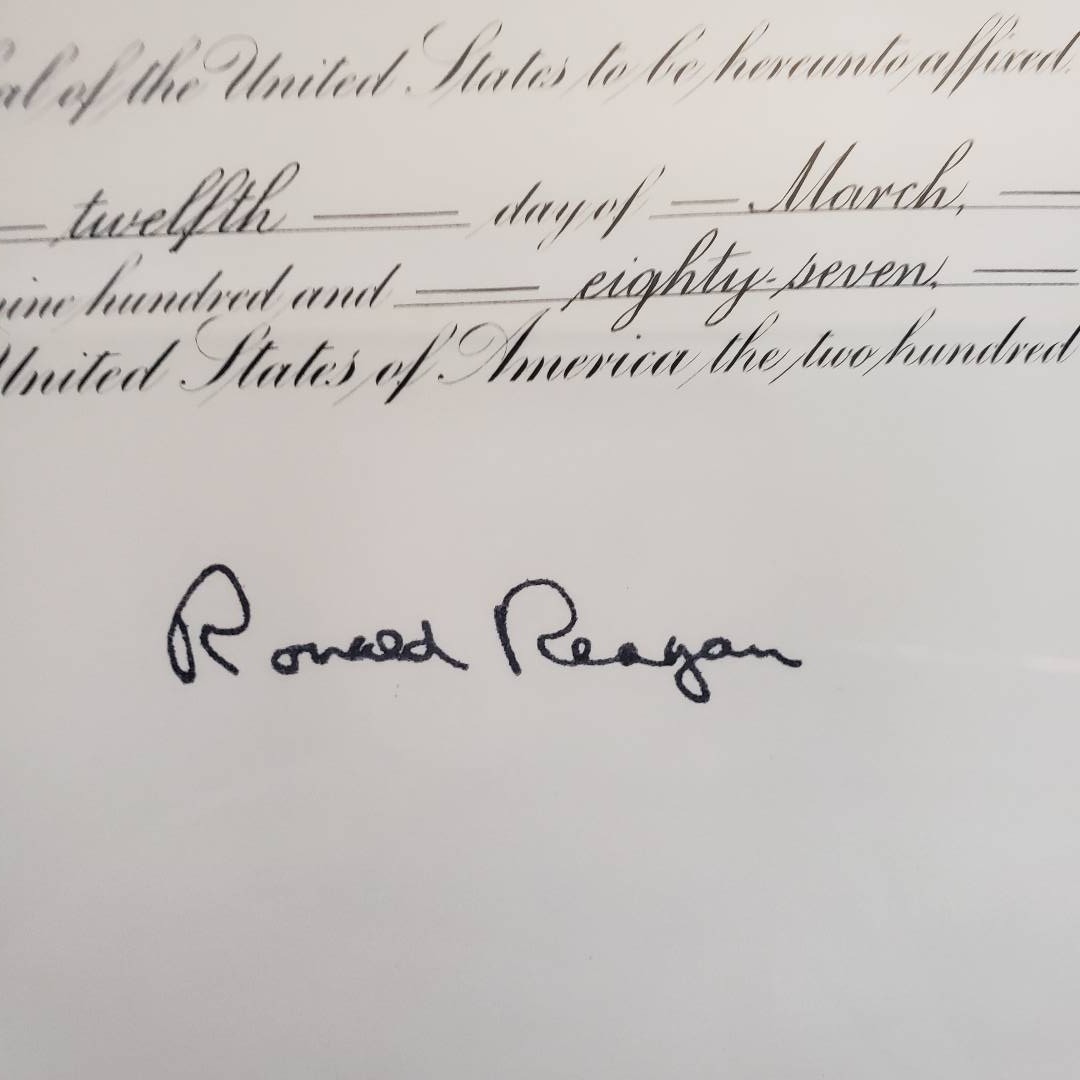 al of the United States to be hereunto affixed.
twelfth day of March,
nine hundred and eighty-seven,
United States of America the two hundred
Ronald Reagan